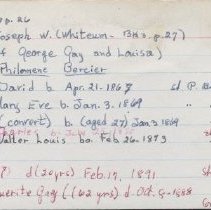 pp. 26
Joseph W. (Whiteum - BH's p.27)
of George Gay and Louisa)
Philomene Bercier
David b Apr. 21. 1867 sd. P. B
Mary Eve b Jan. 3. 1869 "
(convert) b (aged 27) Jan 3 1869
Charles b
Walter Louis ba. Feb. 26 - 1873 "
d (20 yrs) Feb. 17, 1891
uerite Gay ((62 yrs) d. Oct. 1888